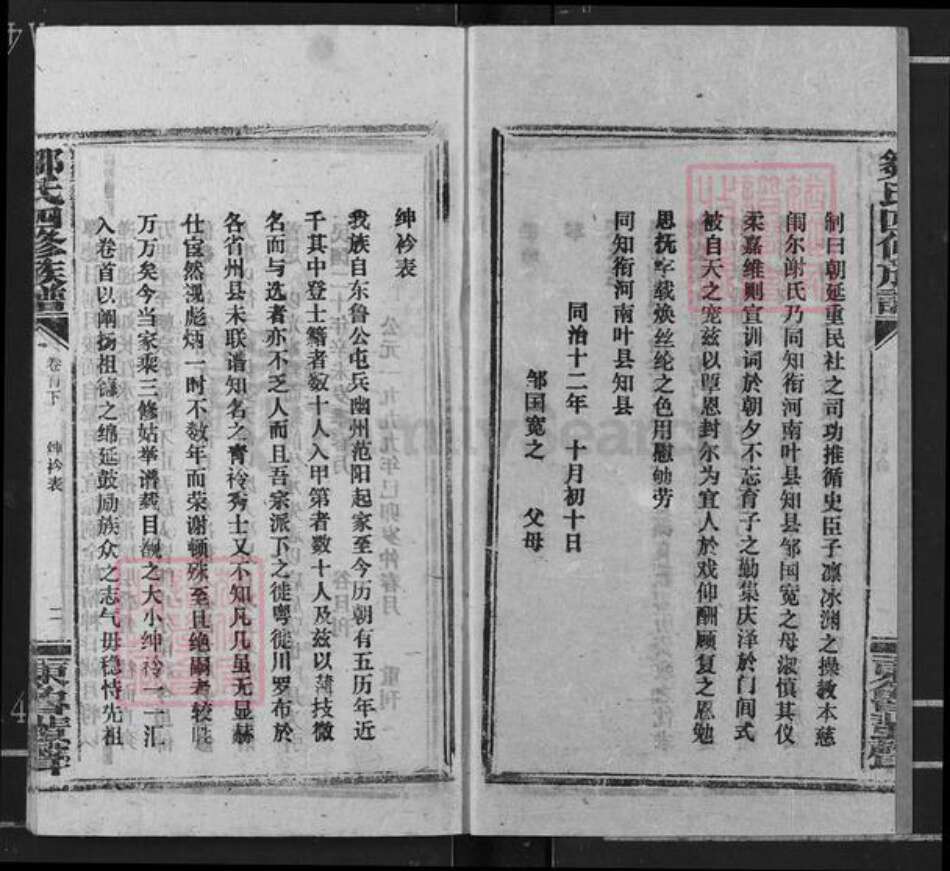 制曰朝延重民社之司功推循史臣子凛冰渊之操教本慈
闱尔谢氏乃同知衔河南叶县知县邹国宽之母淑慎其仪
柔嘉维则宜训词於朝夕不忘育子之勤集庆泽於门闾式
被自天之宠兹以覃恩封尔为宜人於戏仰酬顾复之恩勉
思抚字载焕丝纶之色用慰劬劳
同知衔河南叶县知县
同治十二年 十月初十日
邹国宽之 父母
绅衿表
我族自东鲁公屯兵幽州范阳起家至今历朝有五历年近
千其中登士籍者数十人入甲第者数十人及兹以薄技微
名而与选者亦不乏人而且吾宗派下之徙粤徙川罗布於
各省州县未联谱知名之青衿秀士又不知凡几虽无显赫
仕宦然济彪炳一时不数年而荣谢顿殊至且绝嗣者较
万万矣今当家乘三修姑举谱载目之大小绅衿一一汇
入卷首以阐扬祖德之绵延鼓励族众之志气毋稳恃先祖
邹氏四修族谱
卷首下
绅衿表
二
邹氏四修族谱